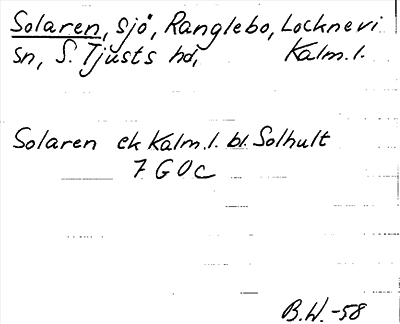 Solaren, sjö, Ranglebo, Locknevi
sn, S. Tjusts hd, Kalm.l.
Solaren ek Kalm.l. bl. Solhult
7 G 0 c
B.W.-58